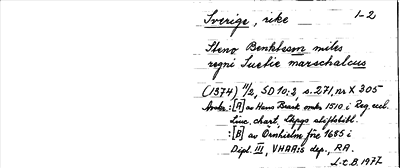 Sverige, rike 1-2
Steno Benktsson miles
regni Suetie marschalcus
(1374) 11/2, SD 10:3 s. 271, nr X 305
Avskr: [A] av Hans Brask omkr 1510 i Reg. eccl.
Linc. chart, Lkpgs stiftsbibl.
: [B] av Örnhielm före 1685 i
Dipl. III, VHAA:s dep., RA.
L.t.B. 1977